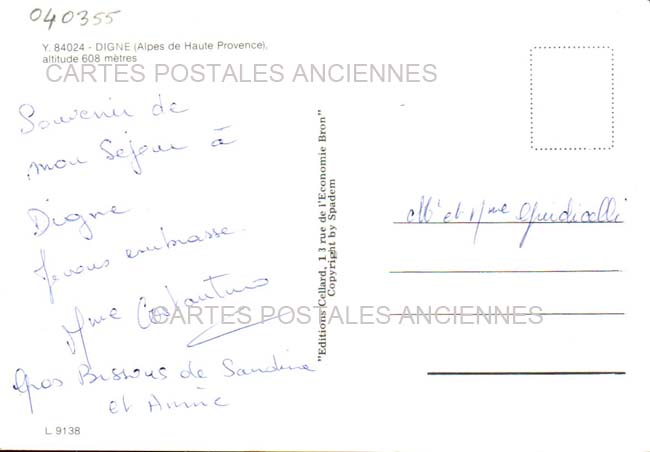 040355
Y. 84024 - DIGNE (Alpes de Haute Provence),
altitude 608 mètres
CARTES POSTALES ANCIENNES
Souvenir de
mon Séjour à
Digne.
Je vous embrasse.
Mme Costantino
CARTES POSTALES ANCIENNES
Gros Bissous de Sandrine
et Annie
L 9138
"Editions Cellard, 13 rue de l'Economie Bron"
Copyright by Spadem
Mr et Mme